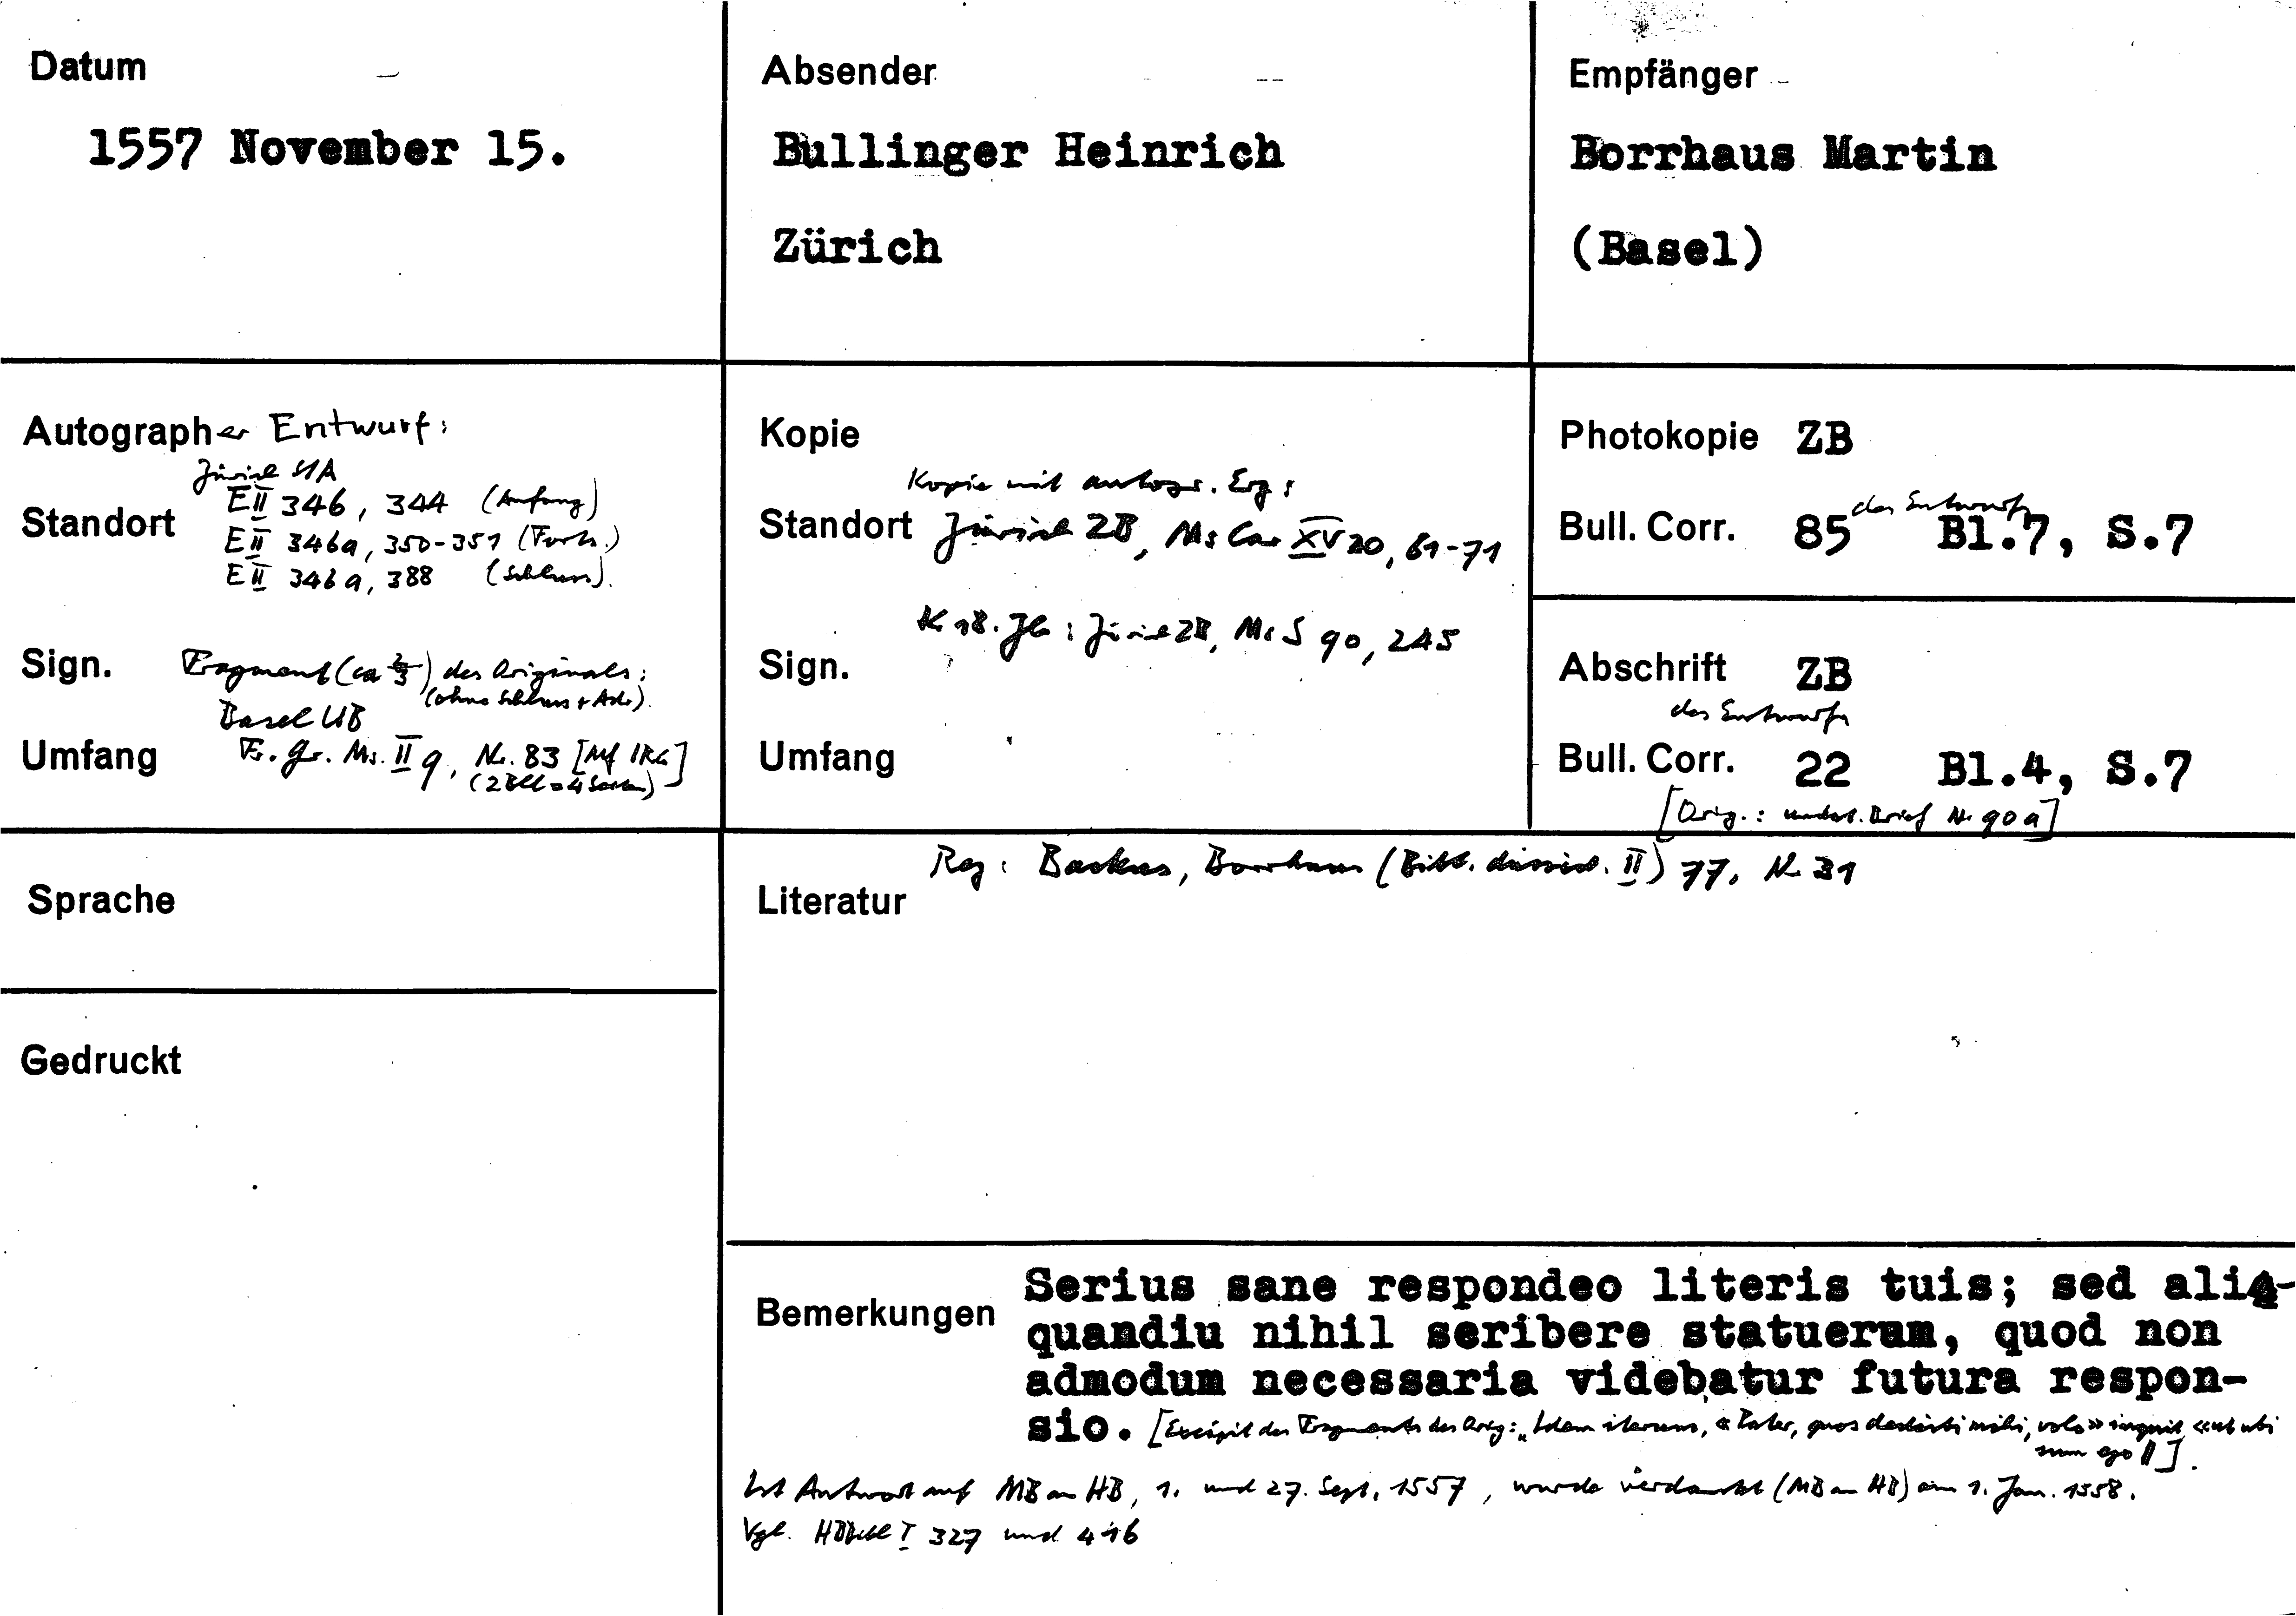 Datum
1557 November 15.
Absender
Bullinger Heinrich
Zürich
Empfänger
Borrhaus Martin
(Basel)
Autographer Entwurf:
Zürich StA
Standort
E II 346, 344 (Anfang)
E II 346a, 350-351 (Forts.)
E II 346a, 388 (Schluss).
Sign.
Fragment (ca 2/3) des Originals:
(ohne Schluss + Adr.).
Basel UB
Umfang
Fr. Gr. Ms. II 9, Nr. 83 [Mf IRG]
(2 Bll = 4 Seiten)
Kopie
Kopie mit autogr. Erg:
Standort Zürich ZB, Ms Car XV 20, 61-71
K 18. Jh: Zürich ZB, Ms S 90, 245
Sign.
Umfang
Photokopie ZB
des Entwurfs
Bull. Corr. 85 Bl.7, S.7
Abschrift ZB
des Entwurfs
Bull. Corr. 22 Bl.4, S.7
[Orig.: undat. Brief Nr 90a]
Sprache
Gedruckt
Literatur
Reg: Backus, Borrhaus (Bibl. dissid. II) 77, Nr 31
Bemerkungen
Serius sane respondeo literis tuis; sed ali-
quandiu nihil seribere statueram, quod non
admodum necessaria videbatur futura respon-
sio. [Excipit des Fragments des Orig: "Idem iterum, «Pater, quos dedisti mihi, volo» inquit «ut ubi
sum ego ||].
Ist Antwort auf MB an HB, 1. und 27. Sept. 1557, wurde verdankt (MB an HB) am 1. Jan. 1558.
Vgl. HBBibl I 327 und 416